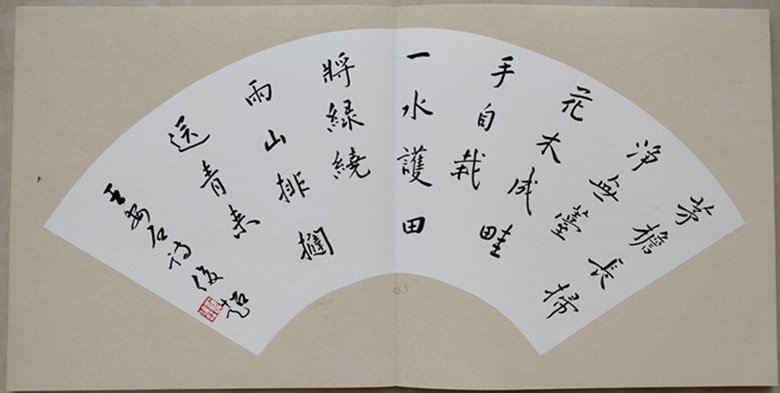 茅檐長掃
淨無薹
花木成畦
手自栽
一水護田
將綠繞
兩山排
送青來
王安石詩俊